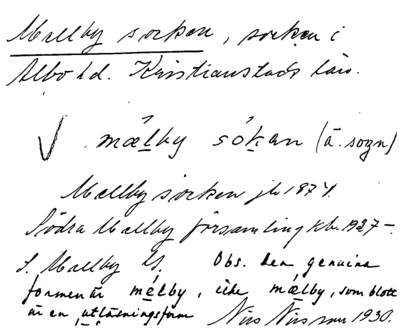 Mallby socken, socken i
Albo hd. Kristianstads län.
mælby sòkan (ä. sogn)
Mallby socken jb 1874.
Södra Mallby församling kb. 1927–.
S. Mallby Obs. den genuina
formen är mèlby, icke mælby, som blott
är en utläsningsform Nils Nilsson 1930.